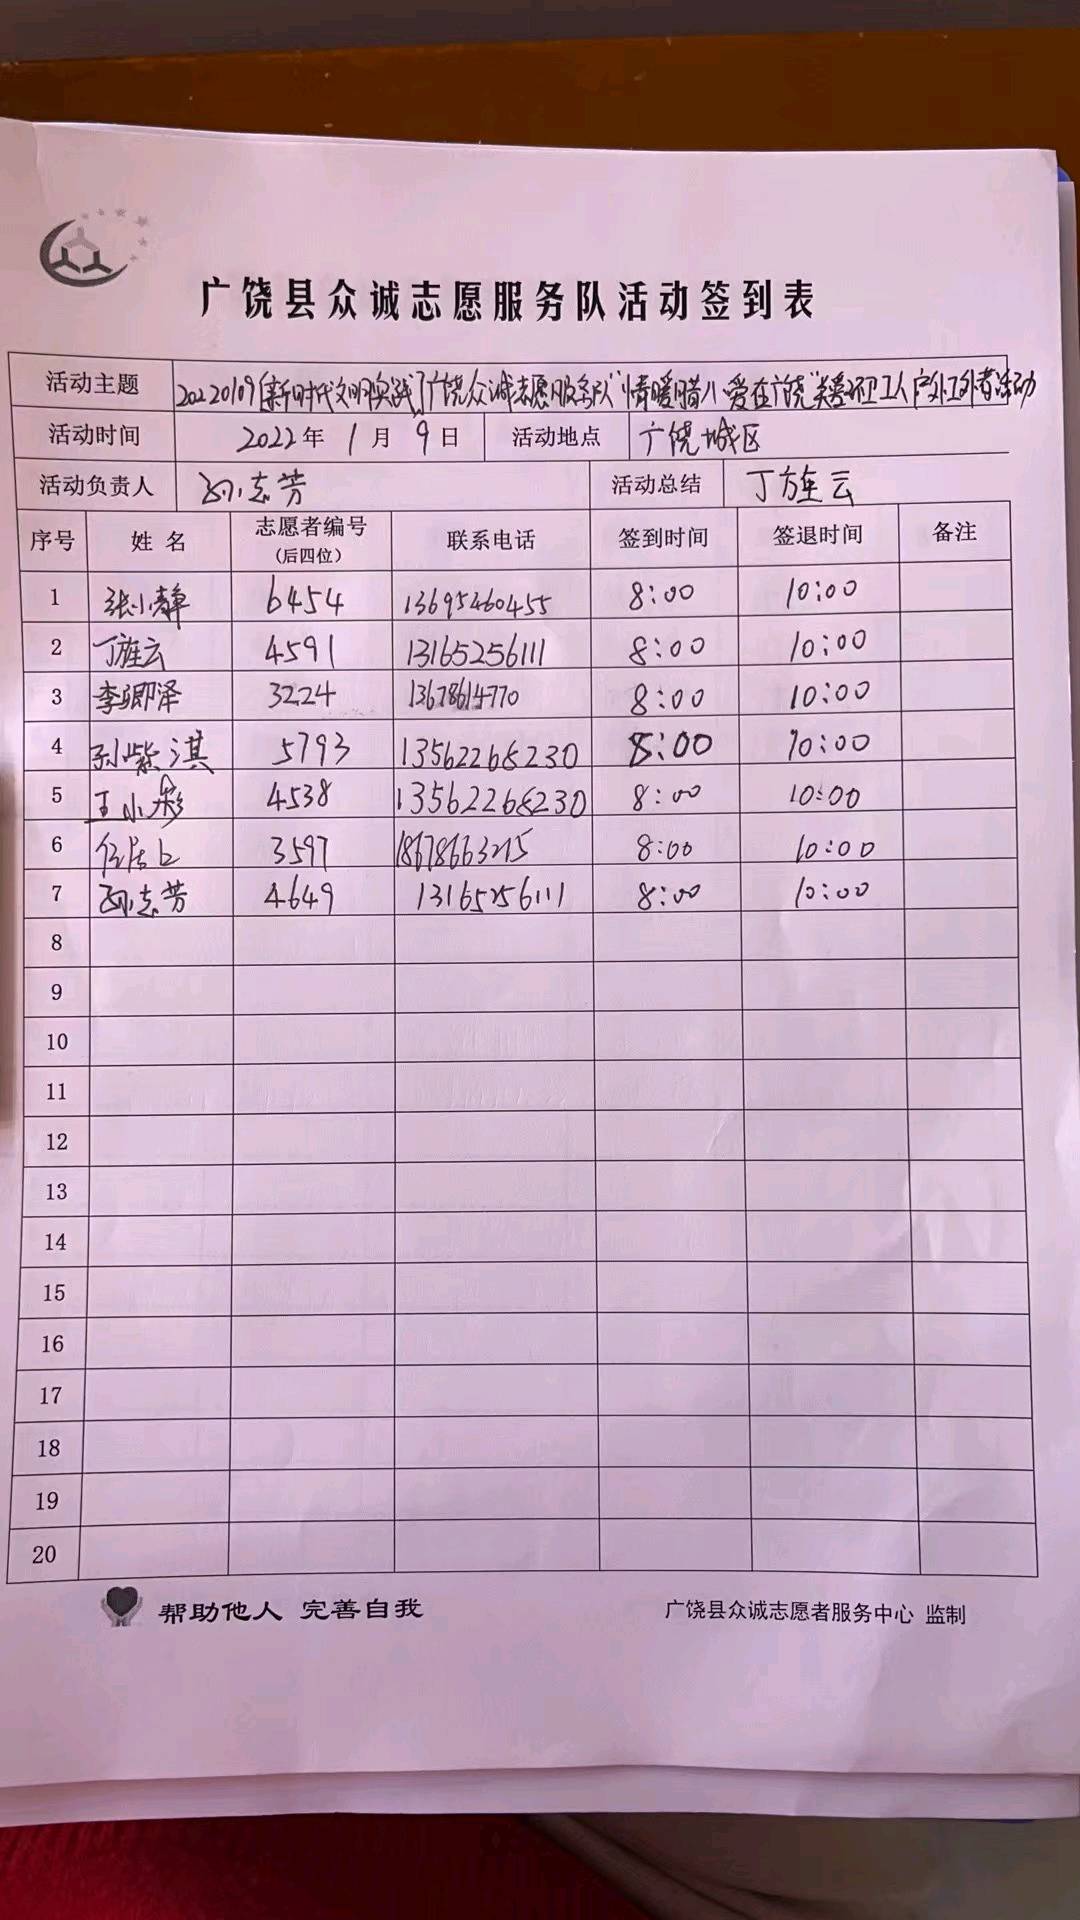 广饶县众诚志愿服务队活动签到表
活动主题 20220109[新时代文明实践]广饶众诚志愿服务队"情暖腊八·爱在广饶"关爱环卫工人户外工作者活动
活动时间 2022年1月9日 活动地点 广饶城区
活动负责人 孙志芳 活动总结 丁旌云
序号 姓名 志愿者编号 联系电话 签到时间 签退时间 备注
(后四位)
1 张小静 6454 13695460455 8:00 10:00
2 丁旌云 4591 13165256111 8:00 10:00
3 李卿泽 3224 13678614770 8:00 10:00
4 孙紫淇 5793 13562268230 8:00 10:00
5 王小彩 4538 13562268230 8:00 10:00
6 3597 18678663215 8:00 10:00
7 孙志芳 4649 13165256111 8:00 10:00
8
9
10
11
12
13
14
15
16
17
18
19
20
帮助他人 完善自我 广饶县众诚志愿者服务中心 监制